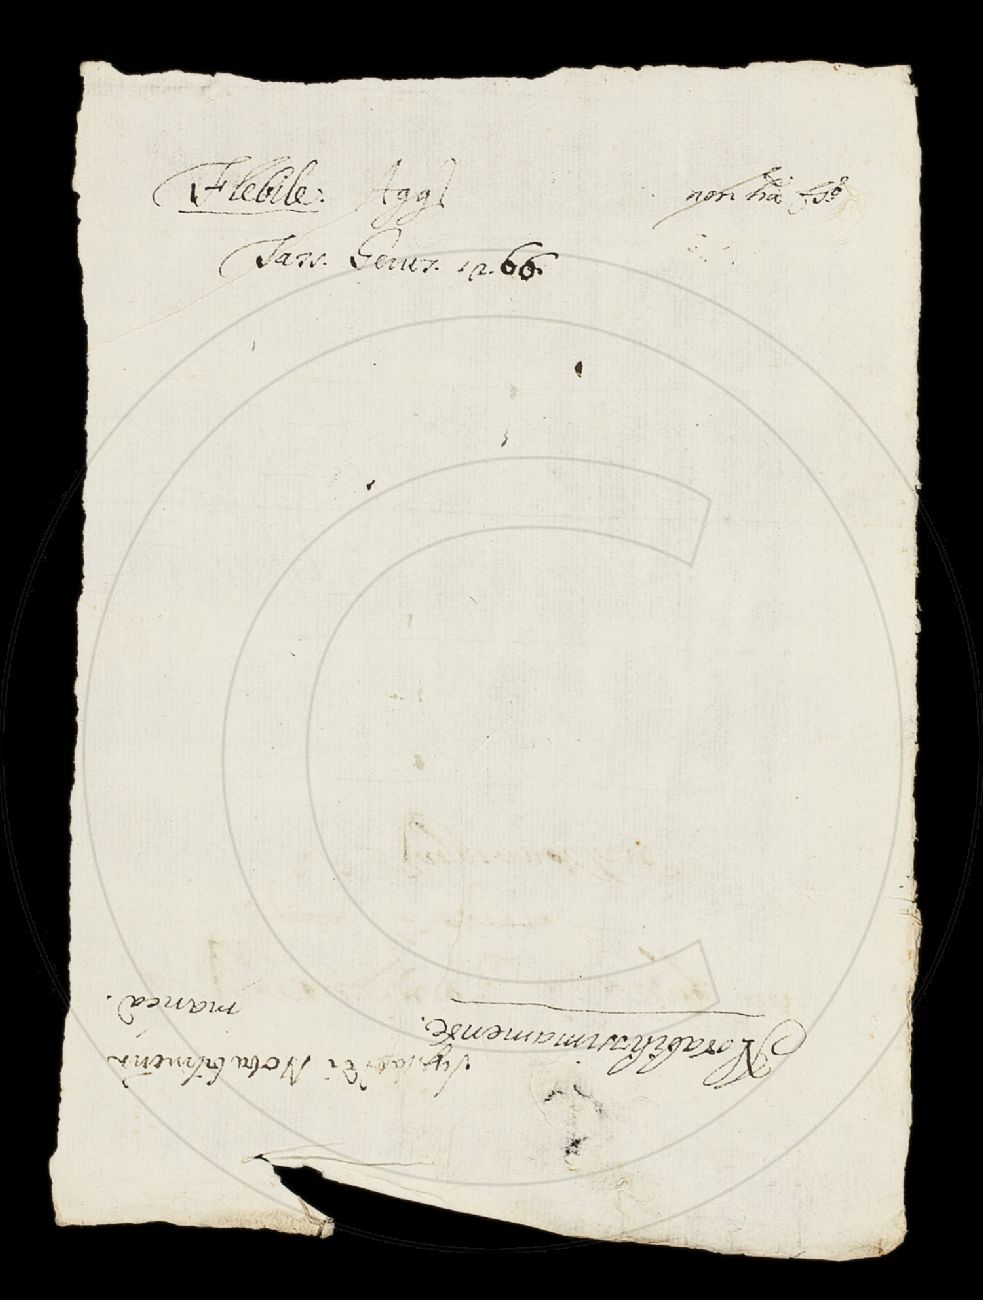 Flebile. Agg.
non hà
Tass. Gerus. 12. 66.
Notabilissimamente.
di Notabilment.
manca.